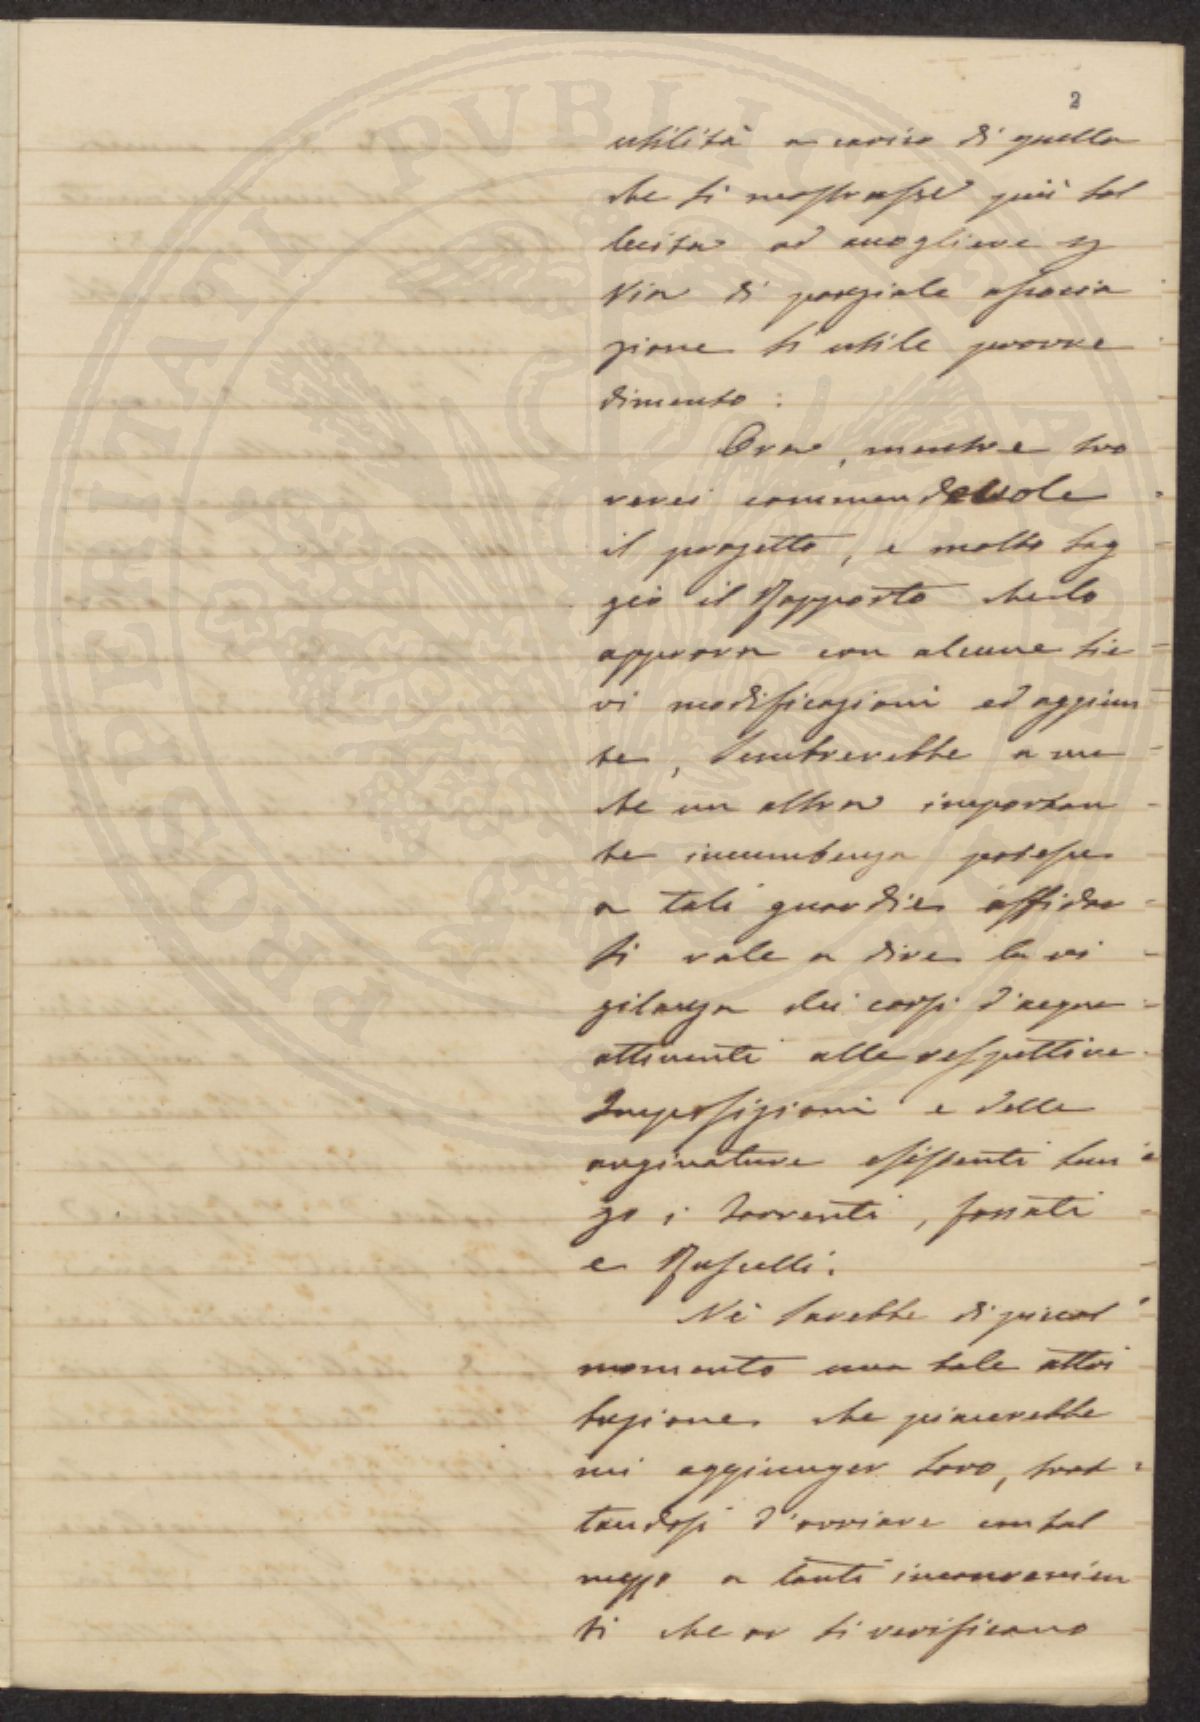 2
utilità a carico di quella
che si mostrasse più sol
lecita ad accogliere
Via di parziale associa
zione si utile provve
dimento:
Ora, mentre tro
verei commendevole
il progetto, e molto sag
gio il Rapporto che lo
approva con alcune lie
vi modificazioni ed aggiun
te, sembrerebbe a me
che un altra importan
te incumbenza potesse
a tali guardie affidar
si vale a dire la vi
gilanza dei corsi d'acqua
attinenti alle respettive
Imposizioni e delle
arginature esistenti lun
go i torrenti, fossati
e Ruscelli.
Nè sarebbe di piccol
momento una tale attri
buzione che piacerebbe
mi aggiunger loro, trat
tandosi d'ovviare con tal
mezzo a tanti inconvenien
ti che or si verificano
PROSPERITATI PVBLICAE AVGENDAE